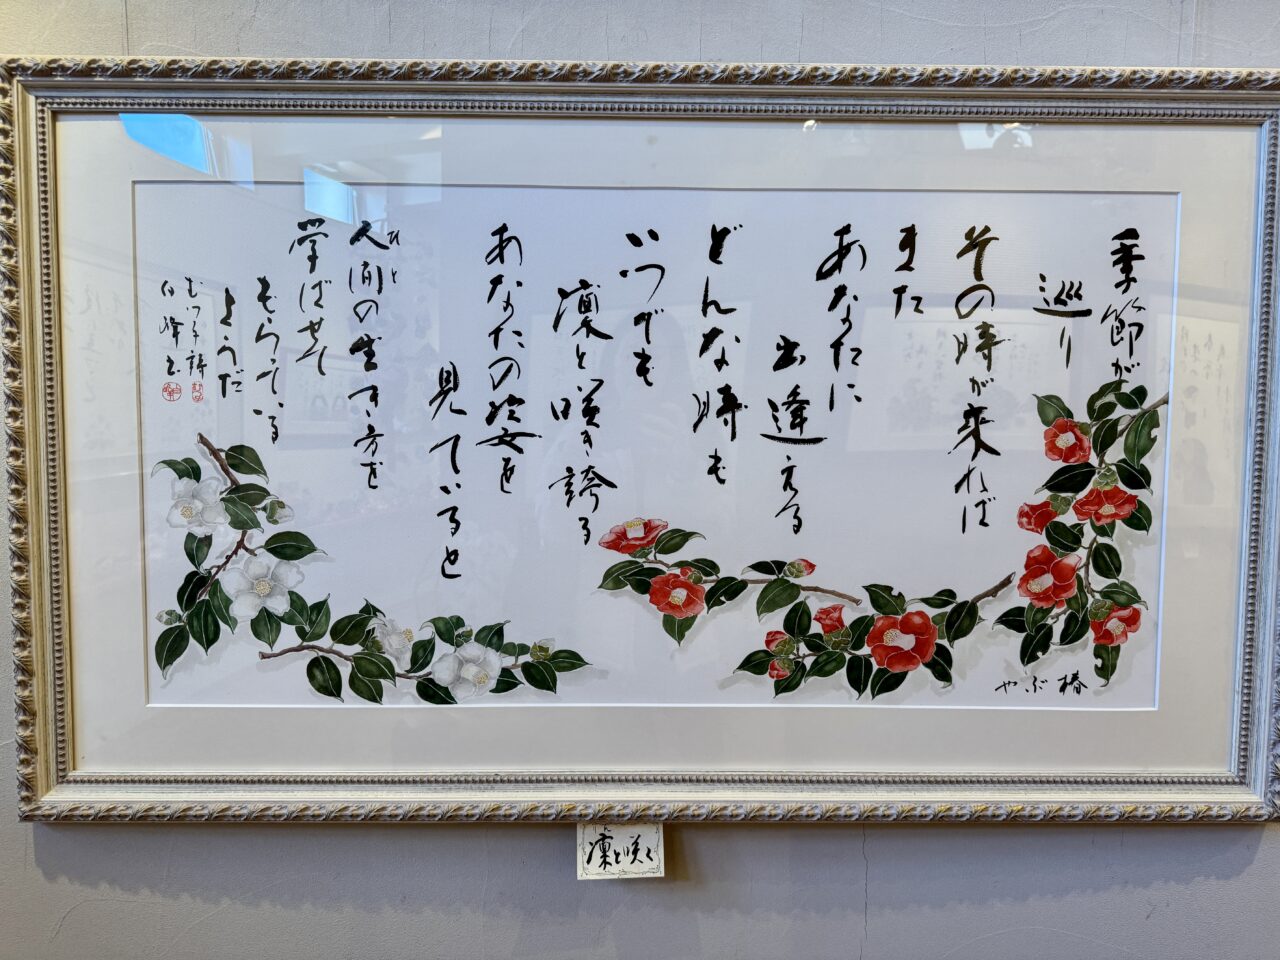 季節が
巡り
その時が来れば
また
あなたに
出逢える
どんな時も
いつでも
凛と咲き誇る
あなたの姿を
見ていると
人間の生き方を
ひと
学ばせて
もらっている
ようだ
むつ子詩
白峰書
やぶ椿
凛と咲く